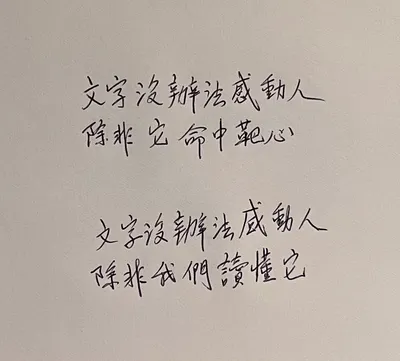 文字沒辦法感動人
除非它命中靶心
文字沒辦法感動人
除非我們讀懂它